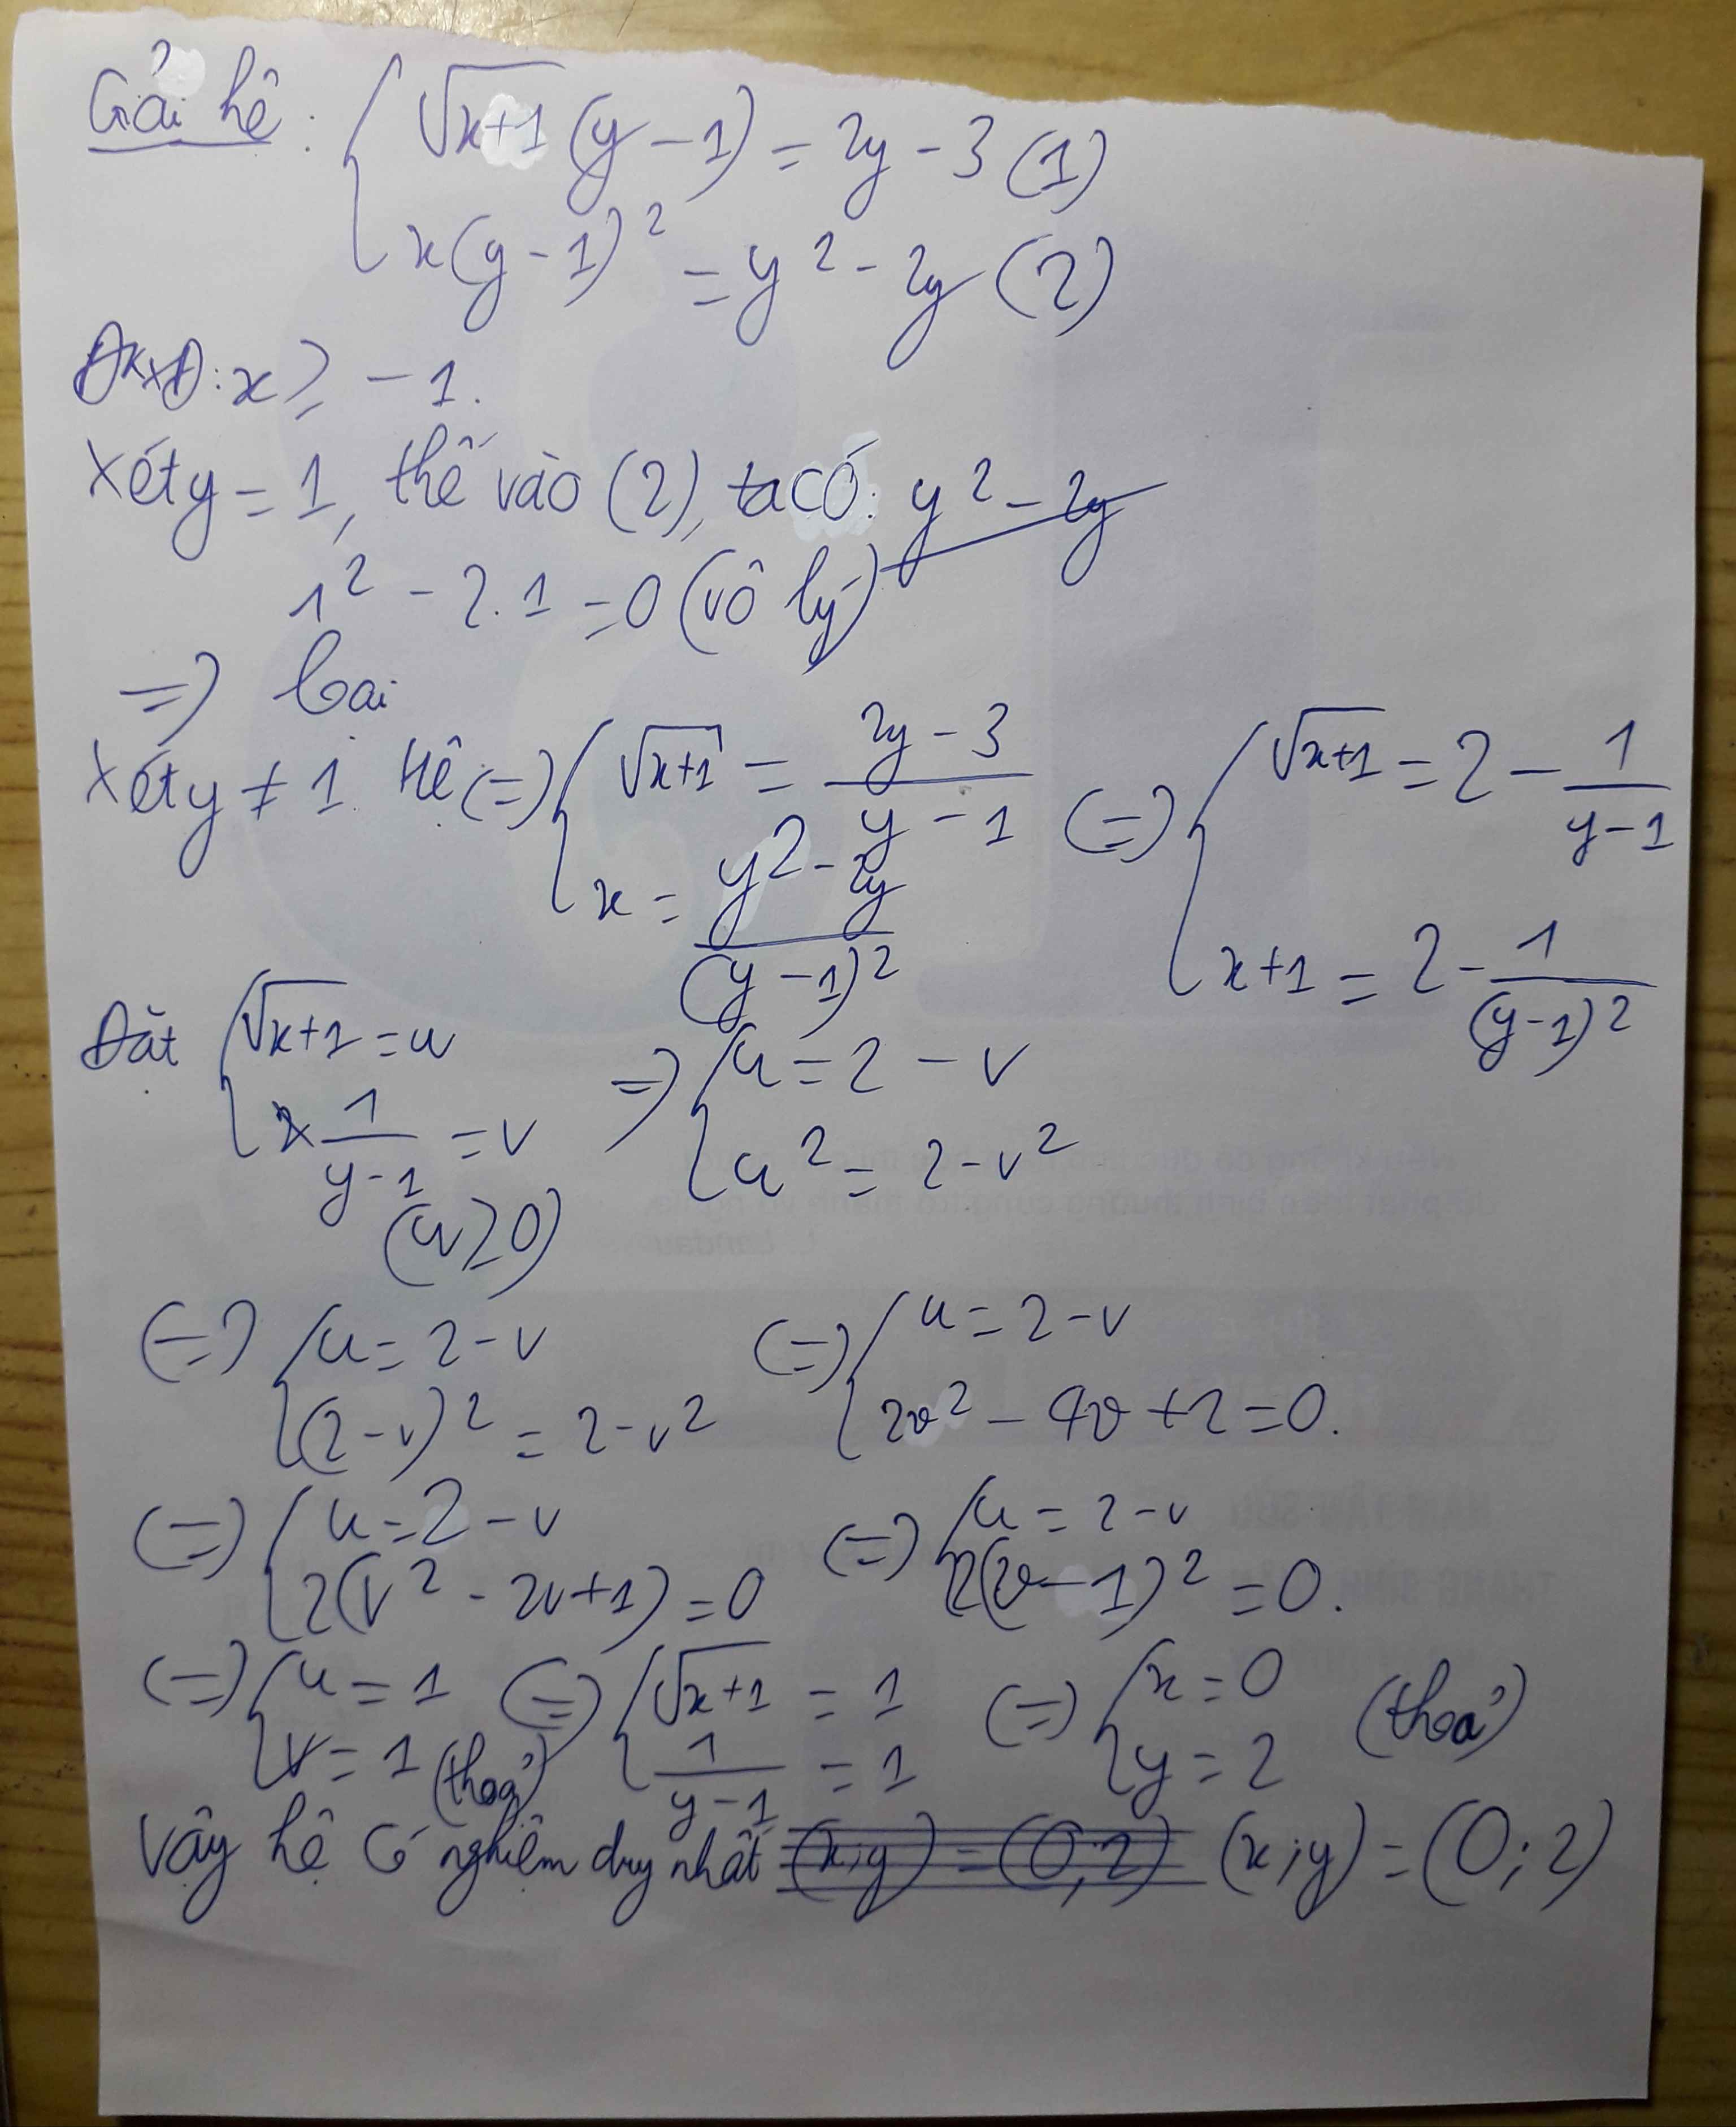 Giải hệ: { √x+1 (y-1) = 2y-3 (1)
x(y-1)² = y²-2y (2)
ĐKXĐ: x ≥ -1.
Xét y = 1, thế vào (2), ta có: y²-2y
1² - 2.1 = 0 (vô lý)
=> loại
Xét y ≠ 1. Hệ (=) { √x+1 = (2y-3)/(y-1) (=) { √x+1 = 2 - 1/(y-1)
x = (y²-2y)/(y-1)² x+1 = 2 - 1/(y-1)²
Đặt { √x+1 = u => { u = 2-v
1/(y-1) = v u² = 2-v²
(u≥0)
(=) { u = 2-v (=) { u = 2-v
(2-v)² = 2-v² 2v² - 4v + 2 = 0.
(=) { u = 2-v (=) { u = 2-v
2(v²-2v+1) = 0 2(v-1)² = 0.
(=) { u = 1 (=) { √x+1 = 1 (=) { x = 0 (thoả)
v = 1 (thoả) 1/(y-1) = 1 y = 2
Vậy hệ có nghiệm duy nhất (x;y) = (0;2) (x;y) = (0;2)